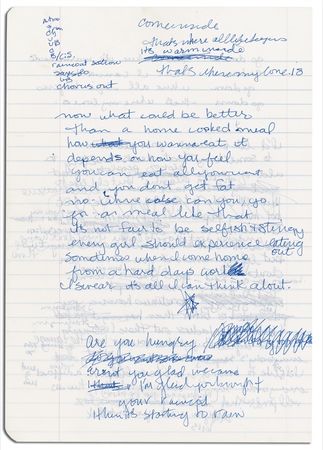 Come inside
that's where all life begins
its warm inside
that's where my love is
raincoat section
chorus out
now what could be better
than a home cooked meal
how you wanna eat it
depends on how you feel
you can eat all you want
and you don't get fat
no where else can you go
for a meal like that
its not fair to be selfish or stingy
every girl should experience eating out
sometimes when I come home
from a hard days work
I swear its all I can think about.
Are you hungry
arent you glad we came
I'm glad you brought
your raincoat
I think its starting to rain